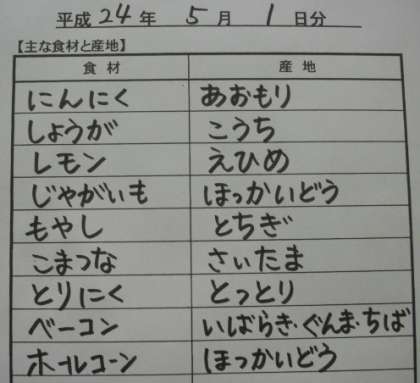 平成24年 5月 1日分
【主な食材と産地】
食材 産地
にんにく あおもり
しょうが こうち
レモン えひめ
じゃがいも ほっかいどう
もやし とちぎ
こまつな さいたま
とりにく とっとり
ベーコン いばらき・ぐんま・ちば
ホールコーン ほっかいどう